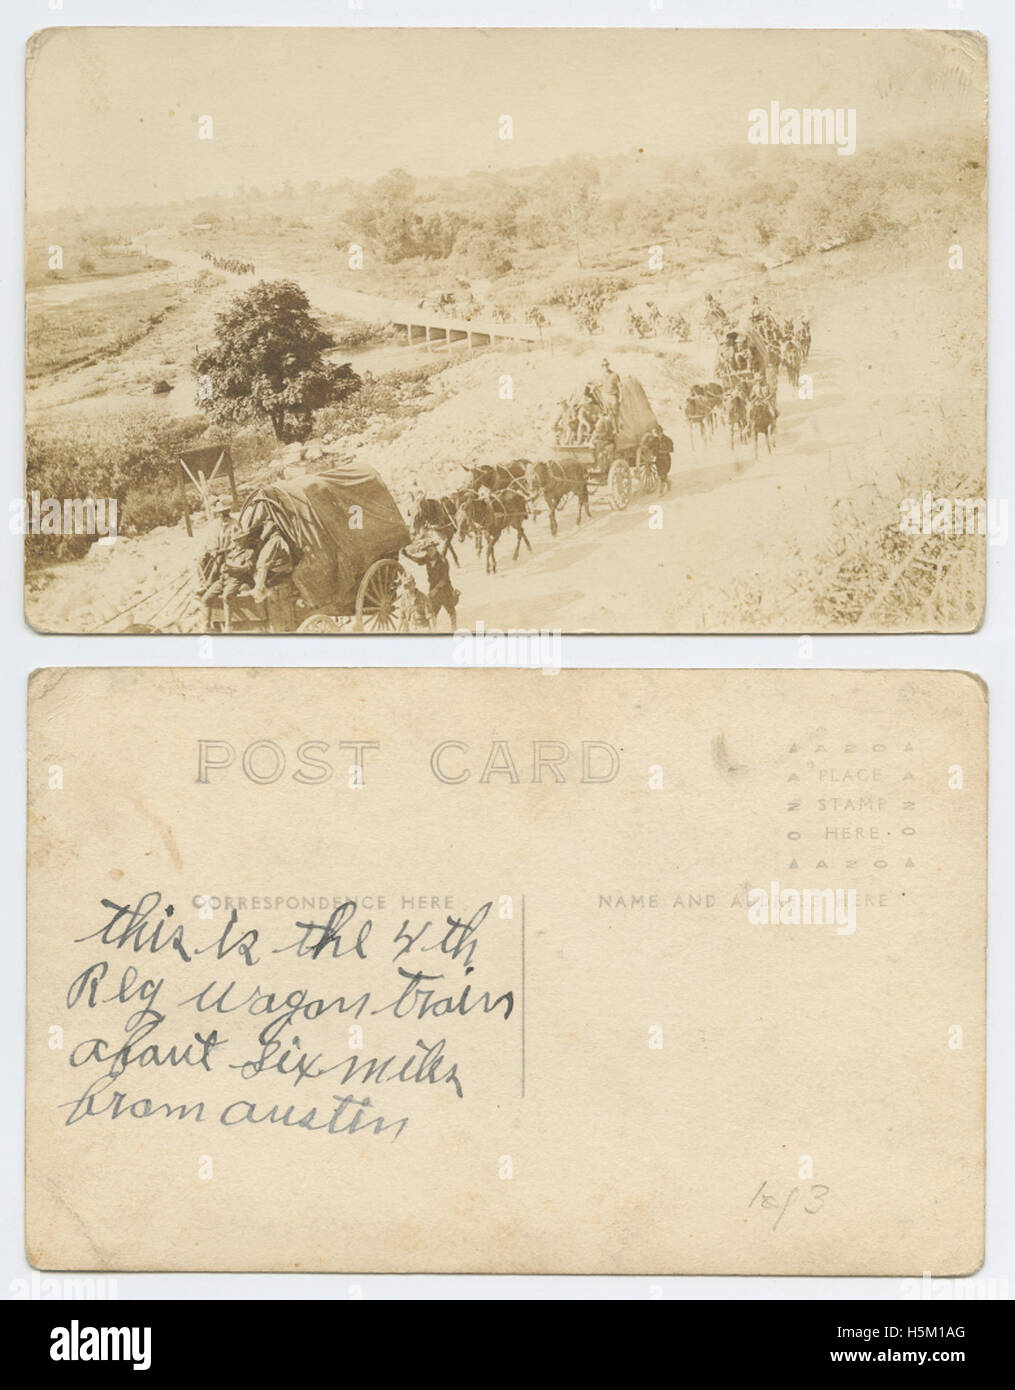 POST CARD
AZO
PLACE
STAMP
HERE
AZO
CORRESPONDENCE HERE
NAME AND ADDRESS HERE
this is the 4th
Reg wagon train
about six miles
from austin
1 of 3
alamy
a
alamy stock photo
Image ID: H5M1AG
www.alamy.com